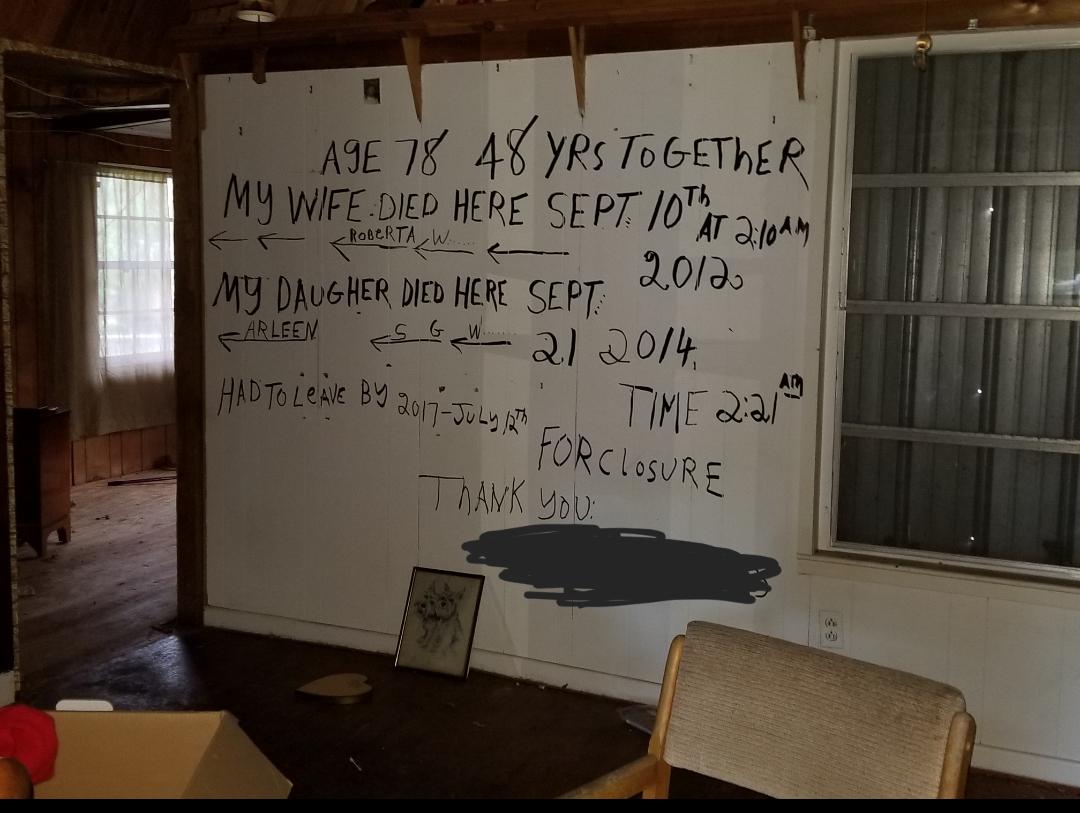 AGE 78 48 YRS TOGETHER
MY WIFE DIED HERE SEPT. 10TH
AT 2:10 AM
ROBERTA W......
2012
MY DAUGHER DIED HERE SEPT.
ARLEEN S G W......
21 2014.
HAD TO LEAVE BY 2017-JULY 12TH
TIME 2:21 AM
FORCLOSURE
THANK YOU: